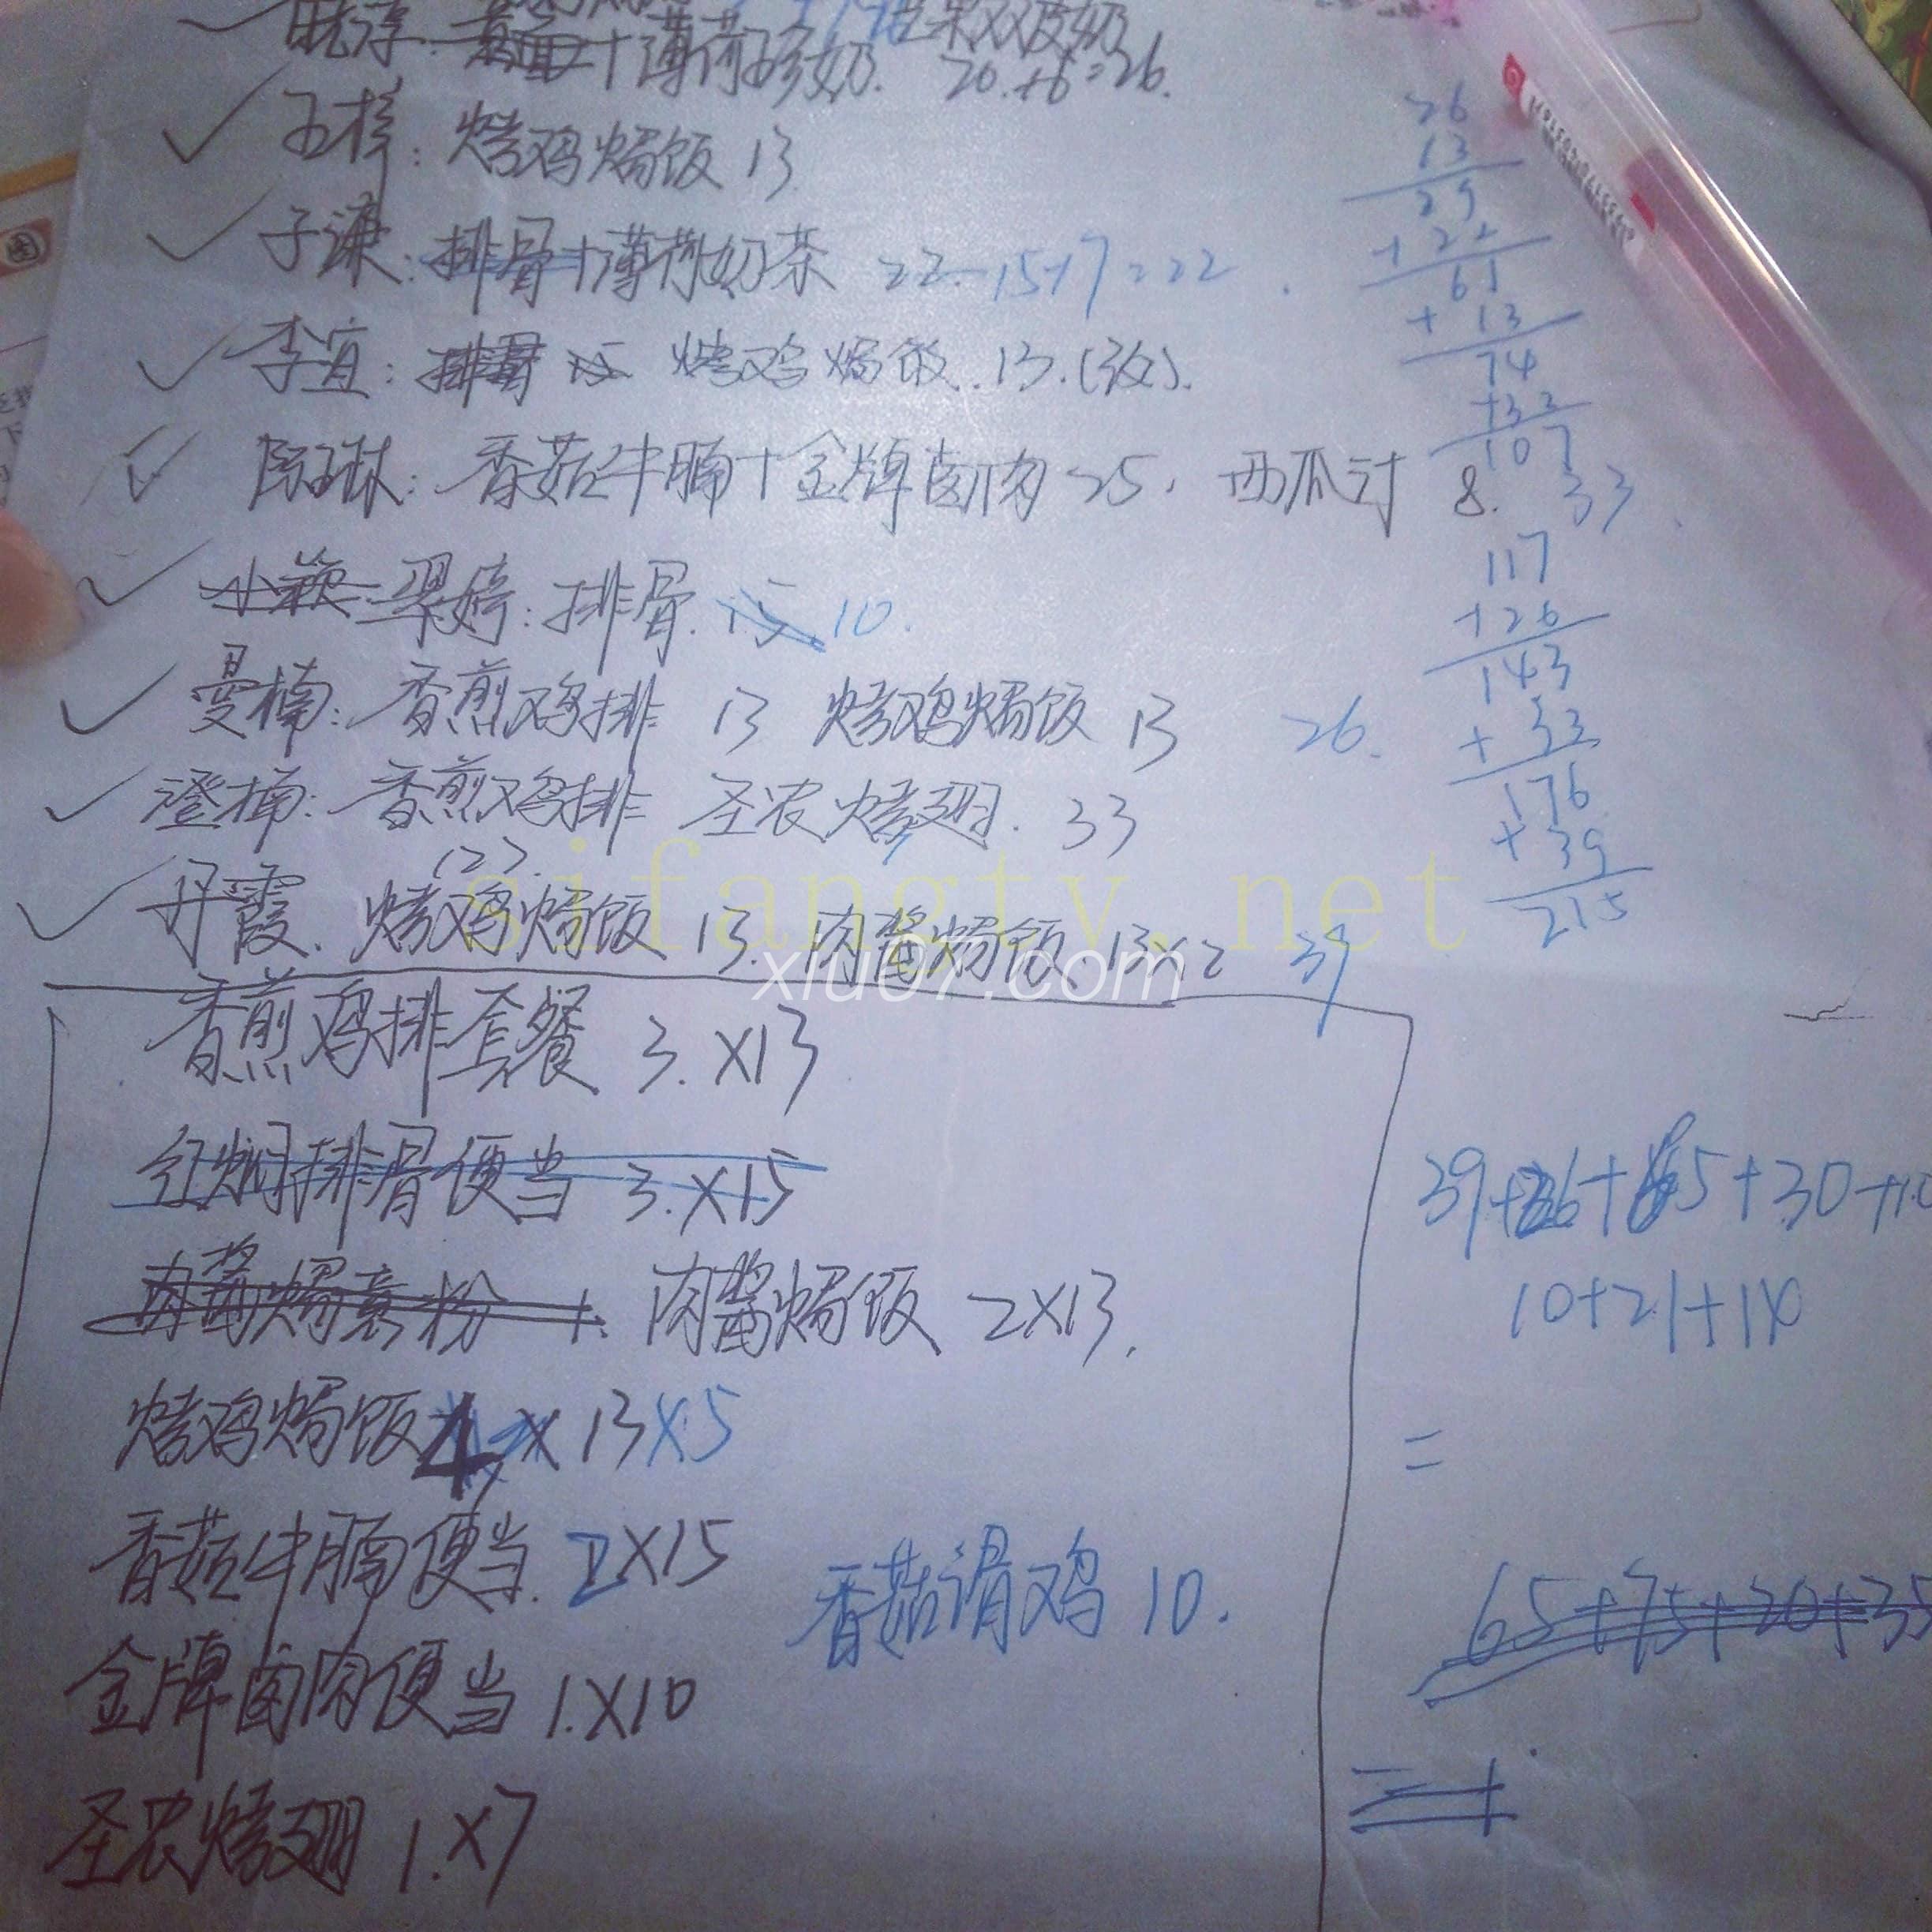 薄荷奶 20.+6=26.
烤鸡焗饭 13
子谦: 排骨+薄荷奶茶 22 15+7=22.
李宜: 排骨 15 烤鸡焗饭. 13.
香菇牛腩+金牌卤肉 25. 西瓜汁 8. 33.
翠婷: 排骨. 15 10.
曼楠: 香煎鸡排 13 烤鸡焗饭 13 26.
澄楠: 香煎鸡排 圣农烤翅. 33
(2)
丹霞. 烤鸡焗饭 13. 肉酱焗饭. 13×2 39
香煎鸡排套餐 3.×13
红焖排骨便当 3.×15
肉酱焗意粉 1. 肉酱焗饭 2×13.
烤鸡焗饭 4 × 13×5
香菇牛腩便当. 2×15
香菇滑鸡 10.
金牌卤肉便当 1.×10
圣农烤翅 1.×7
26
13
39
+22
61
+13
74
+33
107
117
+26
143
+33
176
+39
215
10+21+14
=
65+75+20+35
sifangtv.net
xiu07.com